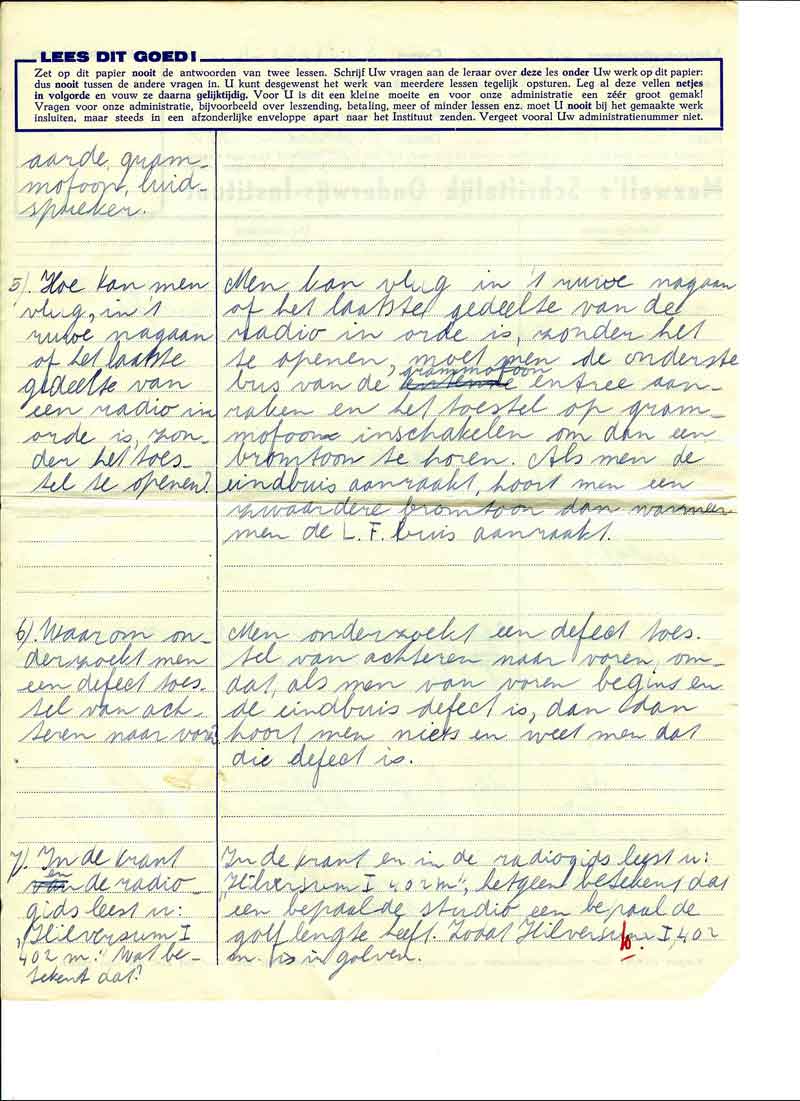 LEES DIT GOED!
Zet op dit papier nooit de antwoorden van twee lessen. Schrijf Uw vragen aan de leraar over deze les onder Uw werk op dit papier:
dus nooit tussen de andere vragen in. U kunt desgewenst het werk van meerdere lessen tegelijk opsturen. Leg al deze vellen netjes
in volgorde en vouw ze daarna gelijktijdig. Voor U is dit een kleine moeite en voor onze administratie een zéér groot gemak!
Vragen voor onze administratie, bijvoorbeeld over leszending, betaling, meer of minder lessen enz. moet U nooit bij het gemaakte werk
insluiten, maar steeds in een afzonderlijke enveloppe apart naar het Instituut zenden. Vergeet vooral Uw administratienummer niet.
Maxwell's Schriftelijk Onderwijs-Instituut
aarde, gram-
mofoon, luid-
spreker.
5). Hoe kan men
vlug, in 't
ruwe nagaan
of het laatste
gedeelte van
een radio in
orde is, zon-
der het toes-
tel te openen?
Men kan vlug in 't ruwe nagaan
of het laatste gedeelte van de
radio in orde is, zonder het
te openen, moet men de onderste
grammofoon
bus van de entree aan-
raken en het toestel op gram-
mofoon inschakelen om dan een
bromtoon te horen. Als men de
eindbuis aanraakt, hoort men een
zwaardere bromtoon dan wanneer
men de L.F. buis aanraakt.
6). Waarom on-
derzoekt men
een defect toes-
tel van ach-
teren naar voren?
Men onderzoekt een defect toes-
tel van achteren naar voren, om-
dat, als men van voren begint en
de eindbuis defect is, dan dan
hoort men niets en weet men dat
die defect is.
7). In de krant
en
van de radio-
gids leest u:
„Hilversum I
402 m." Wat be-
tekent dat?
In de krant en in de radiogids leest u:
"Hilversum I 402 m", hetgeen betekent dat
een bepaalde studio een bepaalde
golflengte heeft. Zodat Hilversum I, 402
m. is in golven.